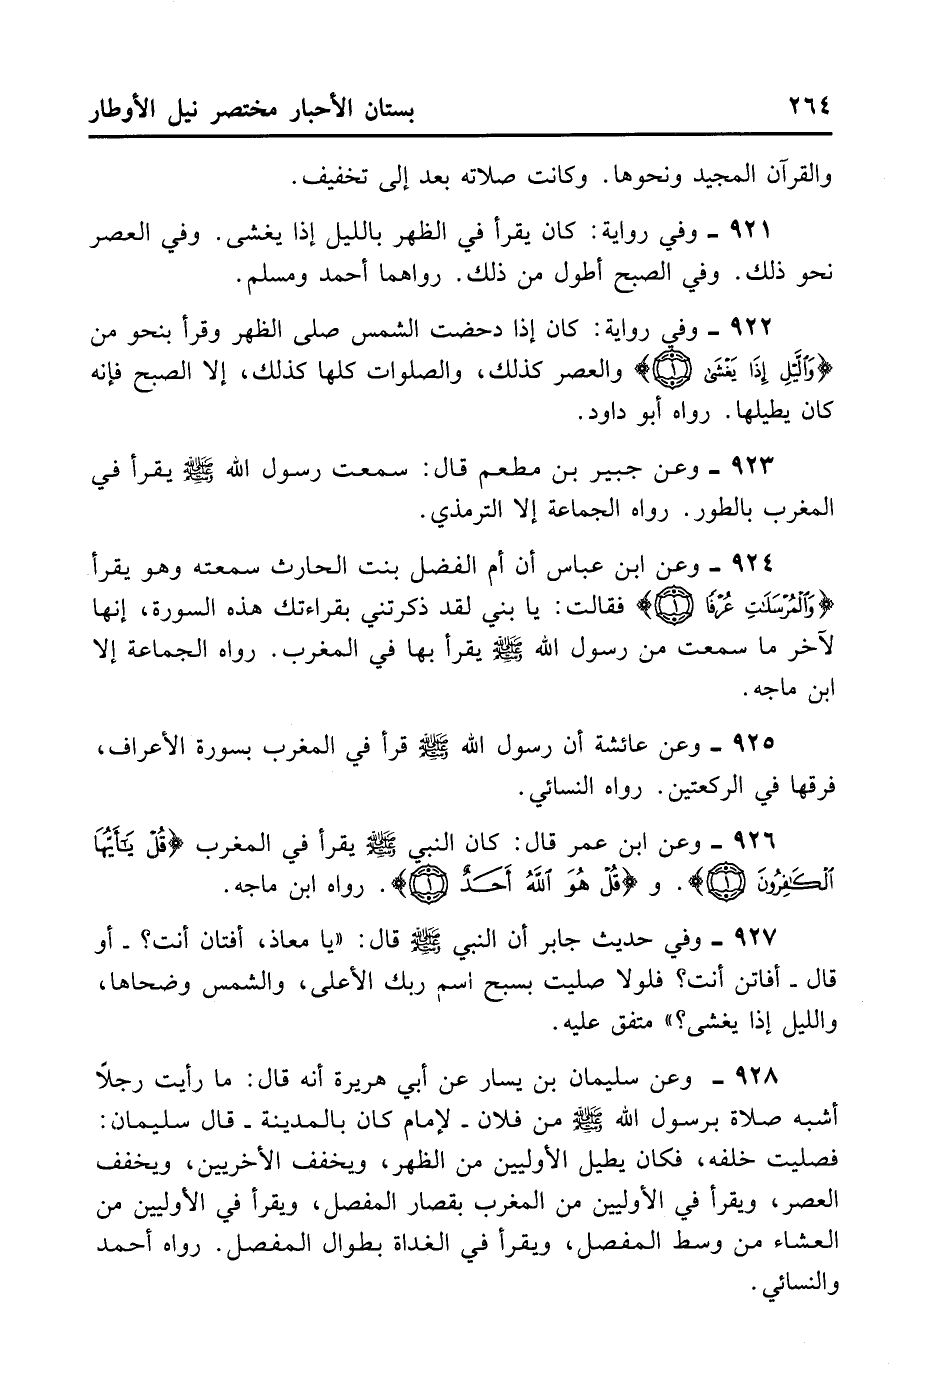 ٢٦٤ بستان الأحبار مختصر نيل الأوطار
والقرآن المجيد ونحوها. وكانت صلاته بعد إلى تخفيف.
٩٢١ ـ وفي رواية: كان يقرأ في الظهر بالليل إذا يغشى. وفي العصر
نحو ذلك. وفي الصبح أطول من ذلك. رواهما أحمد ومسلم.
٩٢٢ ـ وفي رواية: كان إذا دحضت الشمس صلى الظهر وقرأ بنحو من
﴿وَٱلَّيۡلِ إِذَا يَغۡشَىٰ ۝١﴾ والعصر كذلك، والصلوات كلها كذلك، إلا الصبح فإنه
كان يطيلها. رواه أبو داود.
٩٢٣ ـ وعن جبير بن مطعم قال: سمعت رسول الله ﷺ يقرأ في
المغرب بالطور. رواه الجماعة إلا الترمذي.
٩٢٤ ـ وعن ابن عباس أن أم الفضل بنت الحارث سمعته وهو يقرأ
﴿وَٱلۡمُرۡسَلَٰتِ عُرۡفٗا ۝١﴾ فقالت: يا بني لقد ذكرتني بقراءتك هذه السورة، إنها
لآخر ما سمعت من رسول الله ﷺ يقرأ بها في المغرب. رواه الجماعة إلا
ابن ماجه.
٩٢٥ ـ وعن عائشة أن رسول الله ﷺ قرأ في المغرب بسورة الأعراف،
فرقها في الركعتين. رواه النسائي.
٩٢٦ ـ وعن ابن عمر قال: كان النبي ﷺ يقرأ في المغرب ﴿قُلۡ يَٰٓأَيُّهَا
ٱلۡكَٰفِرُونَ ۝١﴾. و ﴿قُلۡ هُوَ ٱللَّهُ أَحَدٌ ۝١﴾. رواه ابن ماجه.
٩٢٧ ـ وفي حديث جابر أن النبي ﷺ قال: «يا معاذ، أفتان أنت؟ ـ أو
قال ـ أفاتن أنت؟ فلولا صليت بسبح اسم ربك الأعلى، والشمس وضحاها،
والليل إذا يغشى؟» متفق عليه.
٩٢٨ ـ وعن سليمان بن يسار عن أبي هريرة أنه قال: ما رأيت رجلاً
أشبه صلاة برسول الله ﷺ من فلان ـ لإمام كان بالمدينة ـ قال سليمان:
فصليت خلفه، فكان يطيل الأوليين من الظهر، ويخفف الأخريين، ويخفف
العصر، ويقرأ في الأوليين من المغرب بقصار المفصل، ويقرأ في الأوليين من
العشاء من وسط المفصل، ويقرأ في الغداة بطوال المفصل. رواه أحمد
والنسائي.